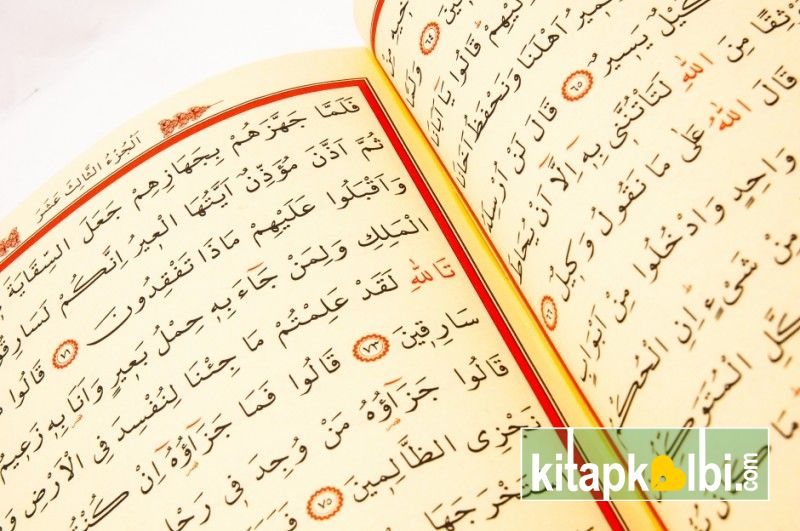 وَلَمَّا ٦٤
اِلَيْهِمْ قَالُوا يَٓا اَبَانَا
نَمِيرُ اَهْلَنَا وَنَحْفَظُ اَخَانَا
كَيْلٌ يَسِيرٌ ٦٥ قَالَ لَنْ اُرْسِلَهُ
مِنَ اللّٰهِ لَتَأْتُنَّنِى بِهٖٓ اِلَّٓا اَنْ يُحَاطَ
قَالَ اللّٰهُ عَلٰى مَا نَقُولُ وَكِيلٌ ٦٦
وَاحِدٍ وَادْخُلُوا مِنْ اَبْوَابٍ
مِنْ شَىْءٍ اِنِ الْحُكْمُ
اَلْجُزْءُ الثَّالِثَ عَشَرَ
فَلَمَّا جَهَّزَهُمْ بِجَهَازِهِمْ جَعَلَ السِّقَايَةَ
ثُمَّ اَذَّنَ مُؤَذِّنٌ اَيَّتُهَا الْعٖيرُ اِنَّكُمْ لَسَارِقُو
وَاَقْبَلُوا عَلَيْهِمْ مَاذَا تَفْقِدُونَ ٧١ قَالُوا
الْمَلِكِ وَلِمَنْ جَٓاءَ بِهٖ حِمْلُ بَعٖيرٍ وَاَنَا بِهٖ زَعٖيمٌ
تَاللّٰهِ لَقَدْ عَلِمْتُمْ مَا جِئْنَا لِنُفْسِدَ فِى الْاَرْضِ
سَارِقٖينَ ٧٣ قَالُوا فَمَا جَزَٓاؤُهُٓ اِنْ
قَالُوا جَزَٓاؤُهُ مَنْ وُجِدَ فٖى
نَجْزِى الظَّالِمٖينَ ٧٥
kitapkalbi.com